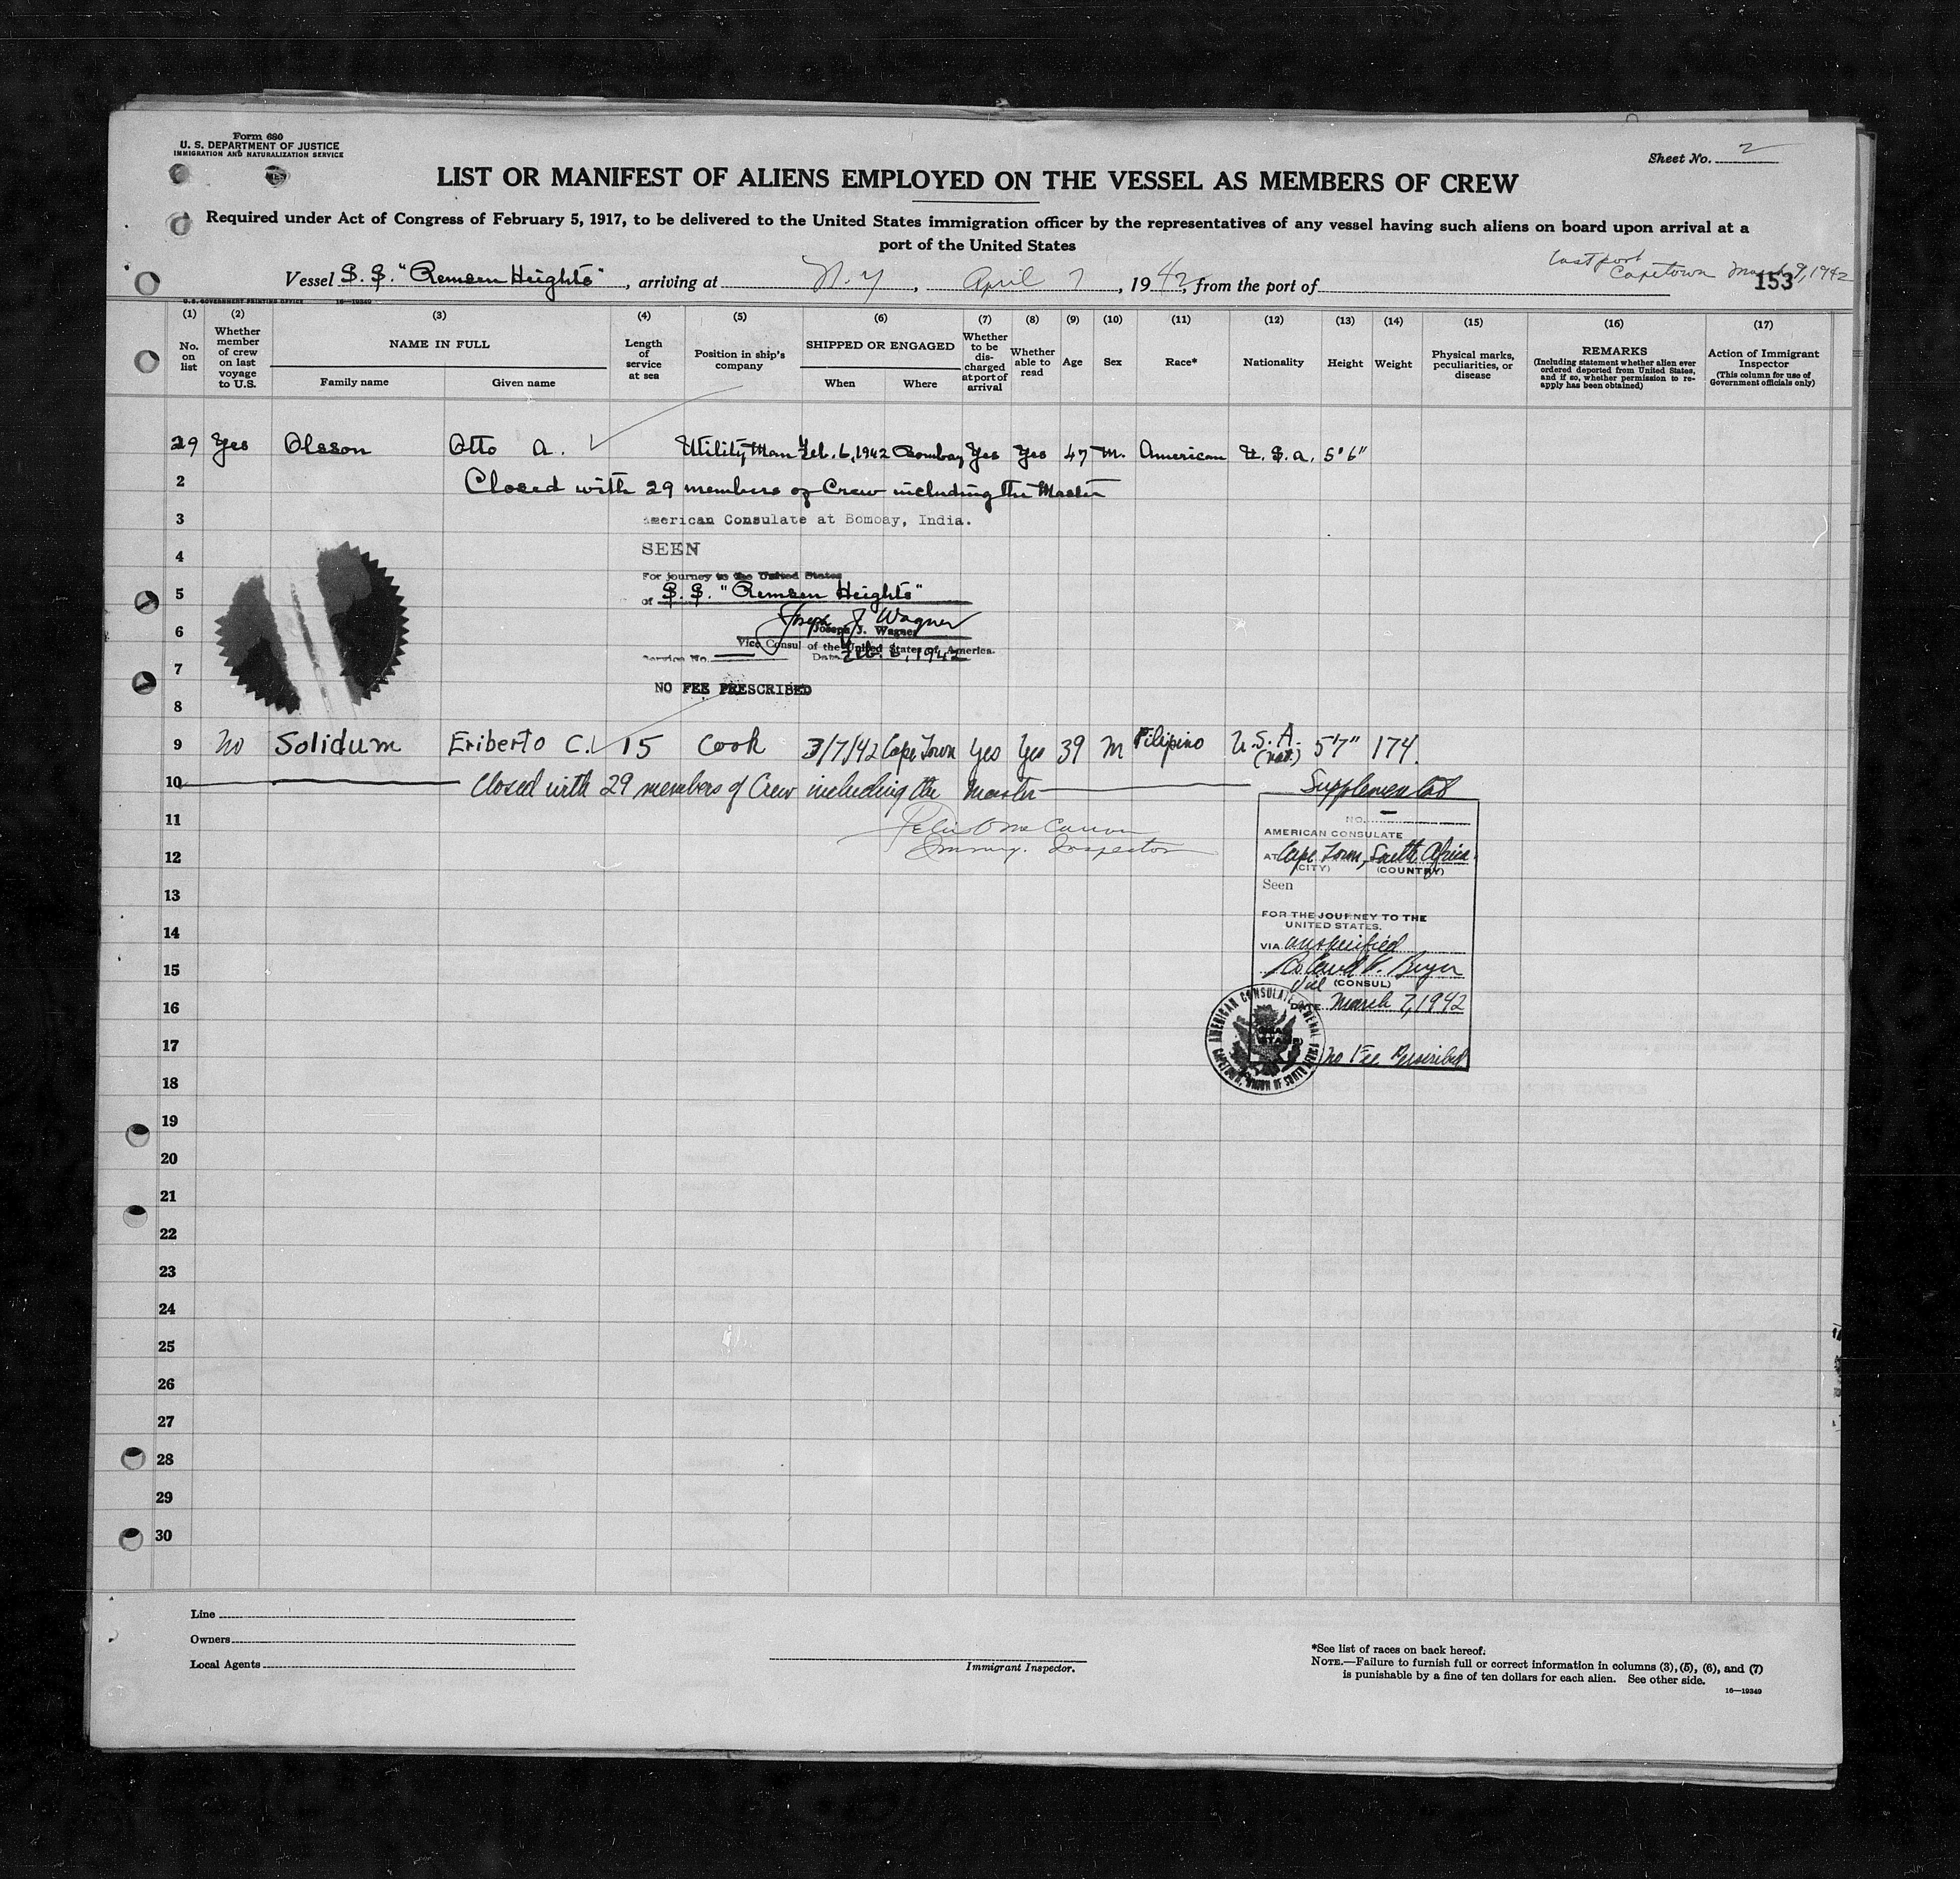 Form 680
U. S. DEPARTMENT OF JUSTICE
IMMIGRATION AND NATURALIZATION SERVICE
Sheet No. 2
LIST OR MANIFEST OF ALIENS EMPLOYED ON THE VESSEL AS MEMBERS OF CREW
Required under Act of Congress of February 5, 1917, to be delivered to the United States immigration officer by the representatives of any vessel having such aliens on board upon arrival at a
port of the United States
Last port
Capetown March 9, 1942
Vessel S. S. "Remsen Heights", arriving at N. Y, April 7, 1942, from the port of
153
U.S. GOVERNMENT PRINTING OFFICE 16—19349
(1) (2) (3) (4) (5) (6) (7) (8) (9) (10) (11) (12) (13) (14) (15) (16) (17)
No. on list
Whether member of crew on last voyage to U.S.
NAME IN FULL
Family name
Given name
Length of service at sea
Position in ship's company
SHIPPED OR ENGAGED
When
Where
Whether to be discharged at port of arrival
Whether able to read
Age
Sex
Race*
Nationality
Height
Weight
Physical marks, peculiarities, or disease
REMARKS
(Including statement whether alien ever ordered deported from United States, and if so, whether permission to re-apply has been obtained)
Action of Immigrant Inspector
(This column for use of Government officials only)
29 Yes Olsson Otto A. Utility Man Feb. 6, 1942 Bombay Yes Yes 47 M. American U. S. A. 5'6"
2 Closed with 29 members of Crew including the Master
3 American Consulate at Bombay, India.
4 SEEN
For journey to the United States
5 of S. S. "Remsen Heights"
6 Joseph J. Wagner
Joseph J. Wagner
Vice Consul of the United States of America.
7 Service No. Date Feb. 6, 1942
NO FEE PRESCRIBED
8
9 No Solidum Eriberto C. 15 Cook 3/7/42 Cape Town Yes Yes 39 M Filipino U.S.A. (nat.) 5'7" 174.
10 Closed with 29 members of Crew including the Master Supplemental
11
Immig. Inspector
12
NO.
AMERICAN CONSULATE
AT Cape Town, South Africa.
(CITY) (COUNTRY)
13 Seen
14 FOR THE JOURNEY TO THE
UNITED STATES.
VIA unspecified
15
Vice (CONSUL)
16 DATE March 7, 1942
AMERICAN CONSULATE GENERAL
CAPETOWN, UNION OF SOUTH AFRICA
17 No Fee Prescribed
18
19
20
21
22
23
24
25
26
27
28
29
30
Line
Owners
Local Agents
Immigrant Inspector.
*See list of races on back hereof.
NOTE.—Failure to furnish full or correct information in columns (3), (5), (6), and (7)
is punishable by a fine of ten dollars for each alien. See other side.
16—19349